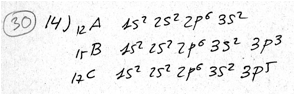 30 14) ₁₂A 1s² 2s² 2p⁶ 3s²
₁₅B 1s² 2s² 2p⁶ 3s² 3p³
₁₇C 1s² 2s² 2p⁶ 3s² 3p⁵